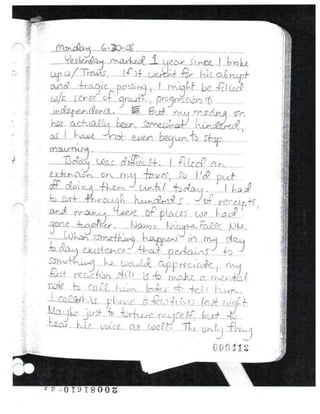 Monday 6-30-08
Yesterday marked 1 year since I broke
up w/ Travis. If it weren't for his abrupt
and tragic passing, I might be filled
w/a sense of growth, progression &
independence. But my moving on
has actually been somewhat hindered,
as I have not even begun to stop
mourning.
Today was difficult. I filed an
extension on my taxes, so I'd put
off doing them until today. I had
to sort through hundreds of receipts,
and many were of places we had
gone together. Niagra Falls, NM.
When something happens in my day
to day existence that pertains to
something he would appreciate, my
first reaction still is to make a mental
note to call him later & tell him.
I called his phone a few times last night
Maybe just to torture myself, but to
hear his voice as well. The only thing
000412
20081610-